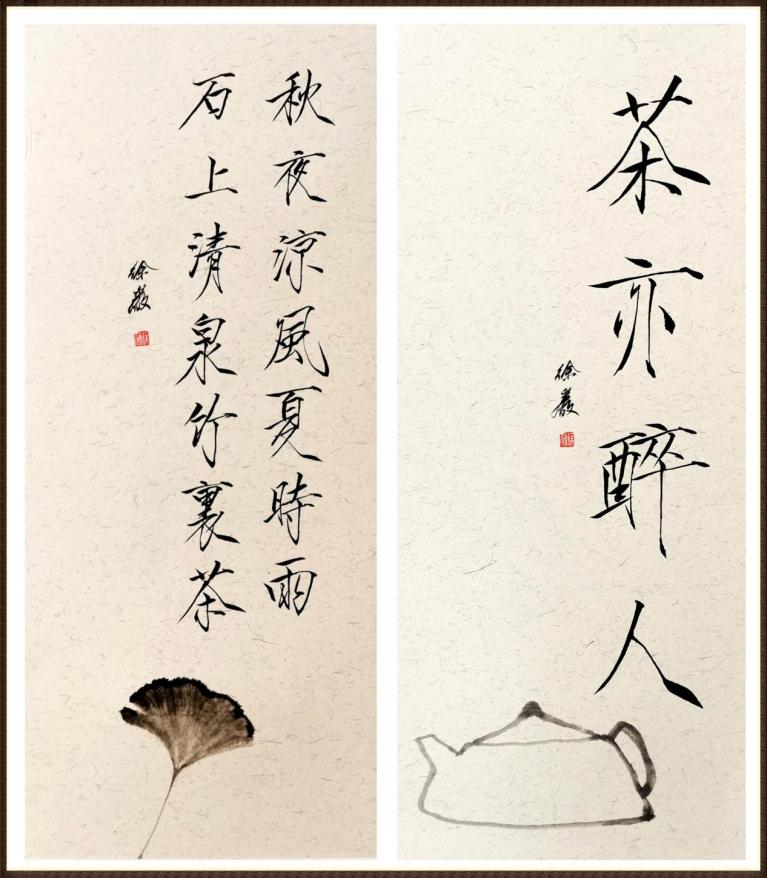 茶亦醉人
徐嚴
秋夜涼風夏時雨
石上清泉竹裏茶
徐嚴